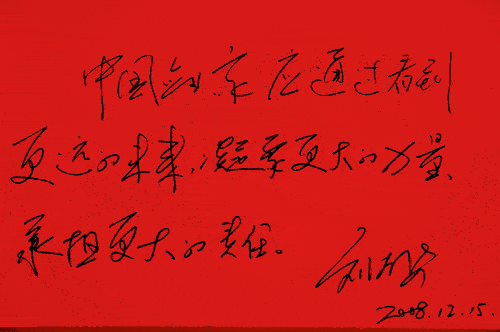 中国家应通过看到
更远的未来,凝聚更大的力量、
承担更大的责任。
刘
2008.12.15.